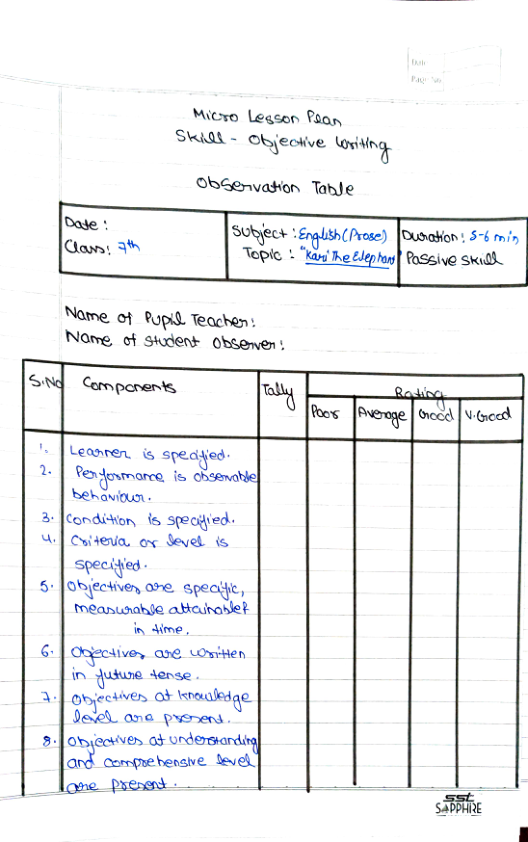 Date
Page No
Micro Lesson Plan
Skill - Objective Writing
Observation Table
Date :
Class: 7th
Subject : English (Prose)
Topic : "Kari The Elephant"
Duration: 5-6 min
Passive skill
Name of Pupil Teacher:
Name of student observer:
S.No Components Tally Rating
Poor Average Good V. Good
1. Learner is specified.
2. Performance is observable
behaviour.
3. Condition is specified.
4. Criteria or level is
specified.
5. Objectives are specific,
measurable attainable &
in time.
6. Objectives are written
in future tense.
7. Objectives at knowledge
level are present.
8. Objectives at understanding
and comprehensive level
are present.
sst
SAPPHIRE